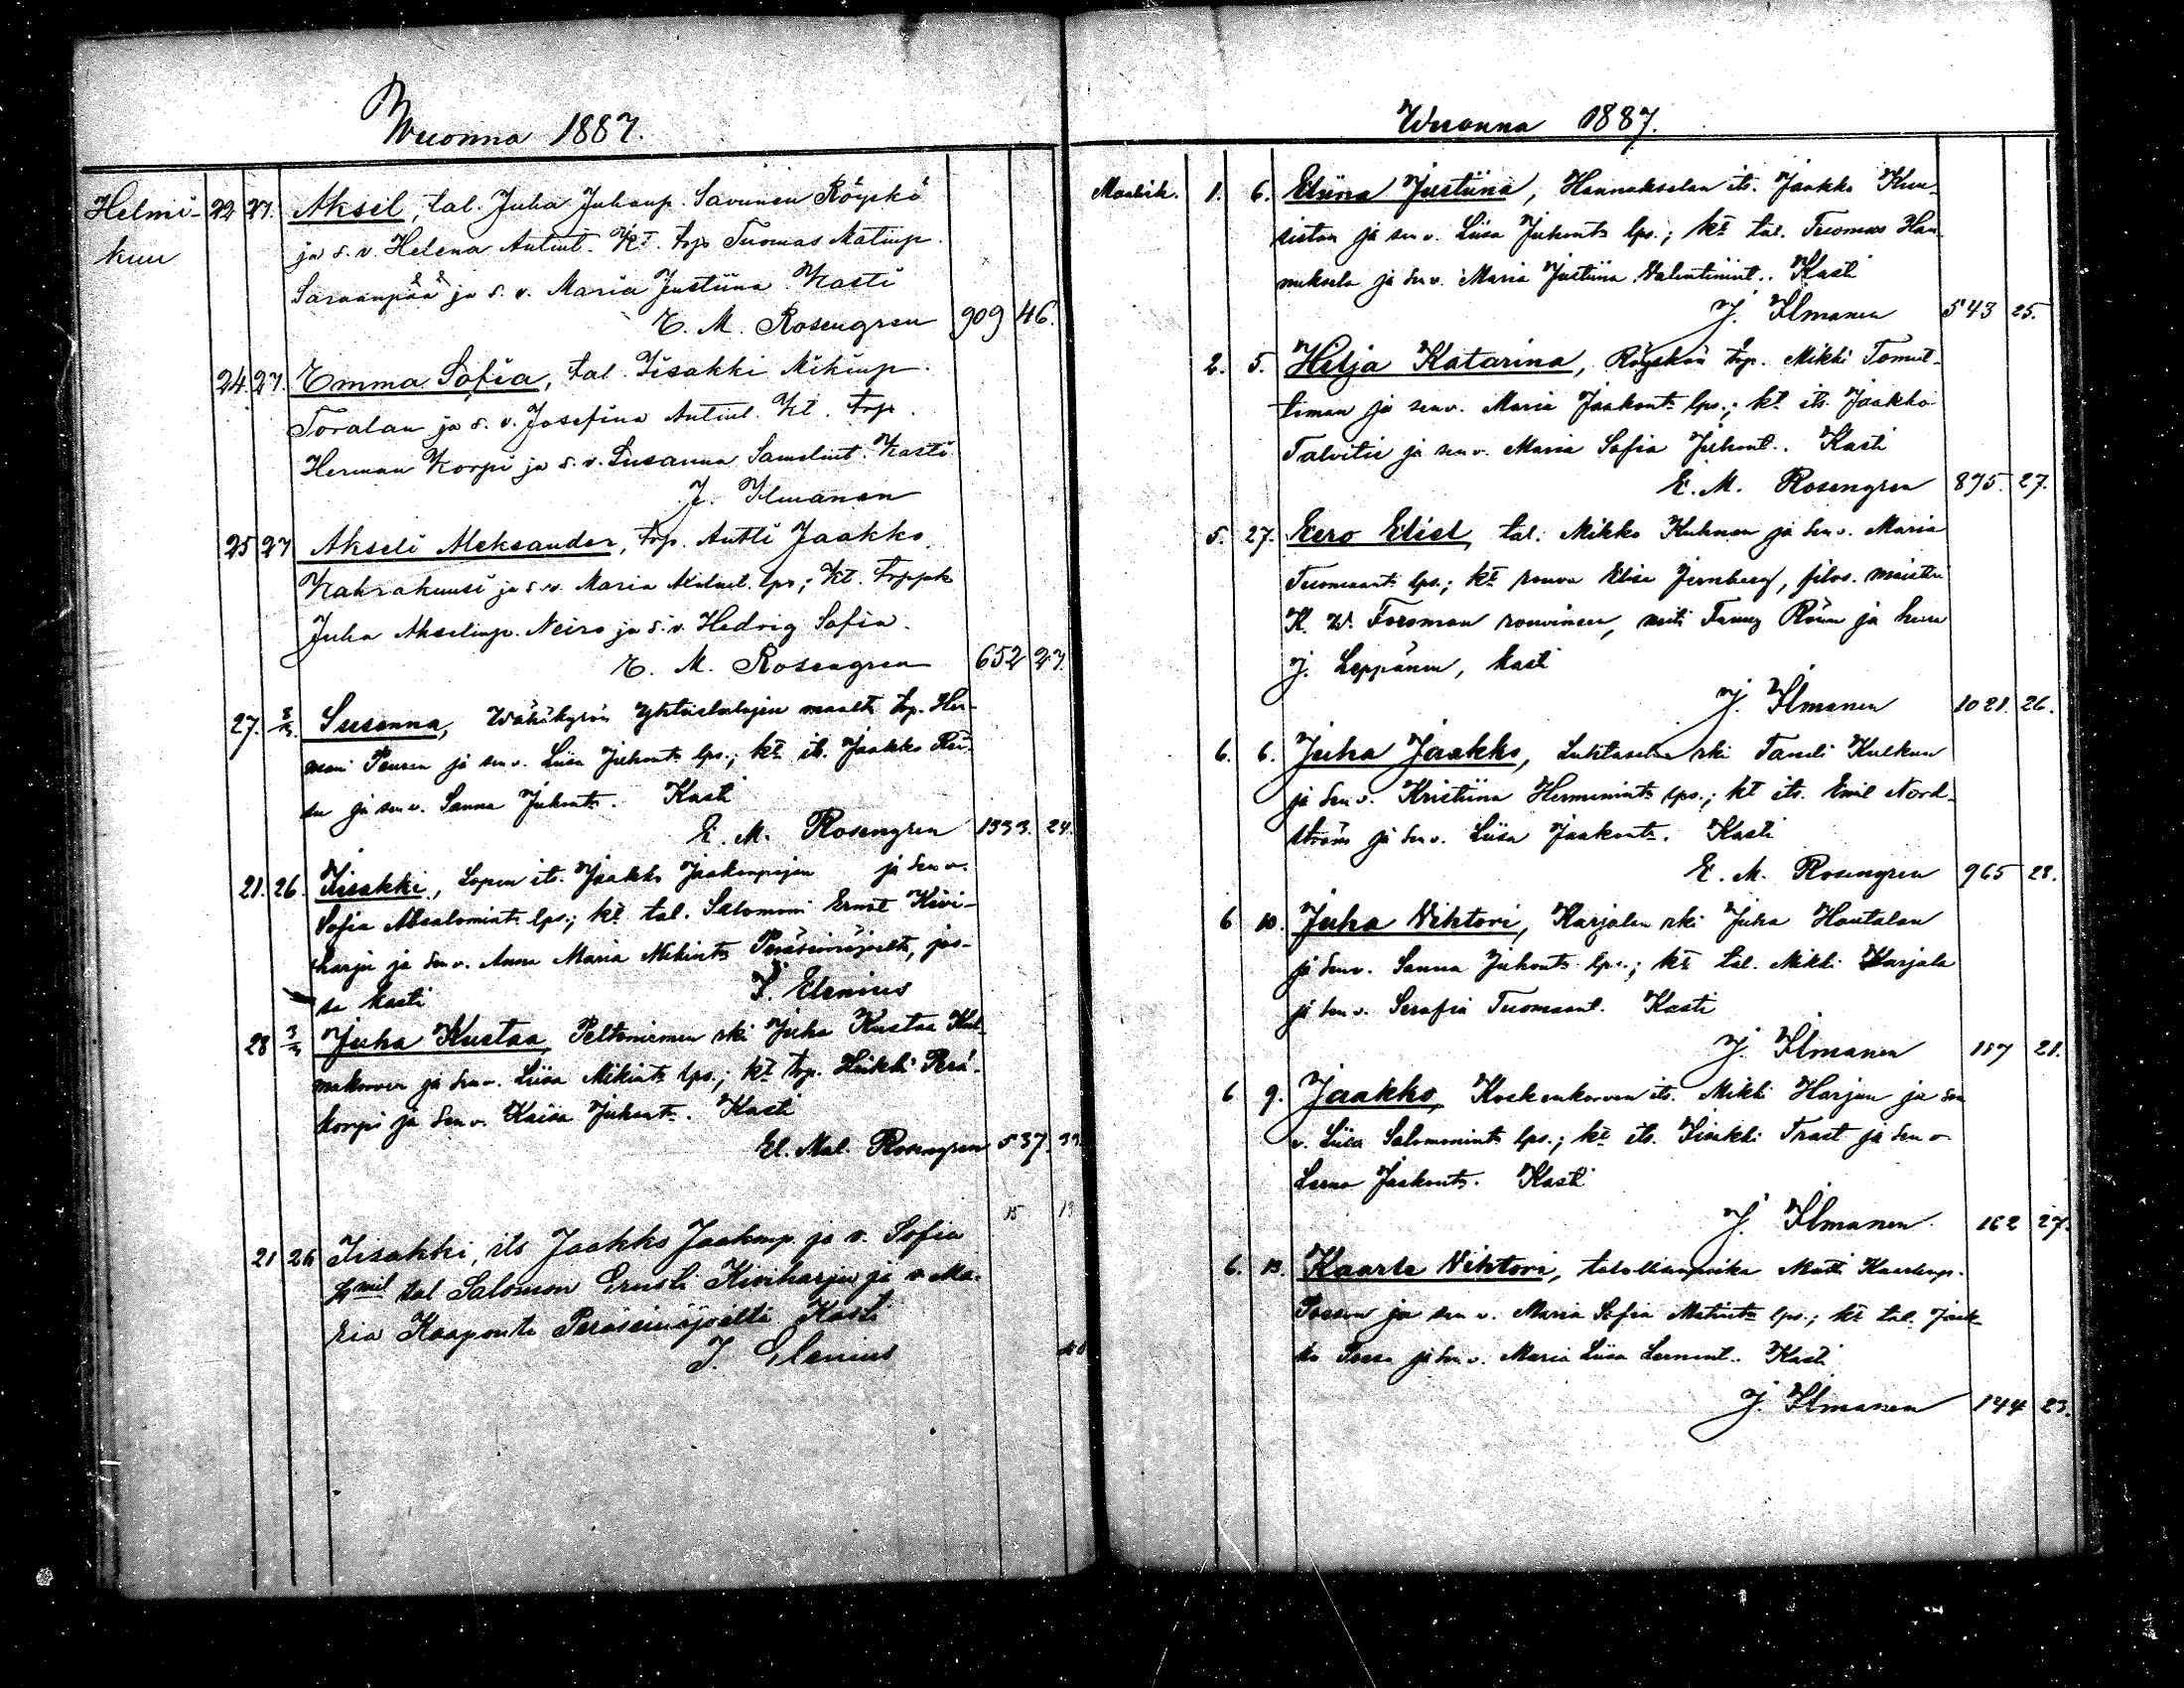 Wuonna 1887.
Helmi- 22 27. Aksel, tal. Juha Juhanp. Savunen Röyskö
kuu ja s. v. Helena Antint. Kt. trp Tuomas Matinp.
Saraanpää ja s. v. Maria Justiina Kasti
E. M. Rosengren 909 46.
24. 27. Emma Sofia, tal. Iisakki Mikinp.
Toralan ja s. v. Josefina Antint. Kt. trp.
Herman Korpi ja s. v. Susanna Samelint. Kasti
J. Ilmanen
25 27 Akseli Aleksander, trp. Antti Jaakko
Kahrakuusi ja s. v. Maria lps; Kt.
Juha Akselinp. Neiro ja s. v. Hedvig Sofia.
E. M. Rosengren 652 27.
27. 3/3. Susanna, Wähäkyrön maalta trp. Her-
mani ja sen v. Liisa Juhont. lps.; kt. it. Jaakko
ja sen v. Sanna Juhont. Kasti
E. M. Rosengren 1333. 24.
21. 26. Iisakki, Lopen its. Jaakko Jaakonpojan ja sen v.
Sofia Absalomint. lps.; kt. tal. Salomoni Ernst Kivi-
harju ja sen v. Anna Maria Mikint. Peräseinäjoelta, jos-
sa kasti I. Elenius
28 3/3 Juha Kustaa Peltoniemen rki Juha Kustaa
ja sen v. Liisa Mikint. lps.; kt. trp. Heikki Perä-
korpi ja sen v. Kaisa Juhont. Kasti
El. Mal. Rosengren 537.
15 19
21 26 Iisakki, its Jaakko Jaakonp. ja v. Sofia
tal Salomon Ernsti Kiviharju ja v. Ma-
ria Kaaponti Peräseinäjoelta Kasti
I. Elenius
Wuonna 1887.
Maalisk. 1. 6. Eliina Justiina, Hannukselan its. Jaakko Kuu-
siston ja sen v. Liisa Juhont. lps.; kt. tal. Tuomas Han-
nuksela ja sen v. Maria Justiina Valentinint. Kasti
J. Ilmanen 543 25.
2. 5. Hilja Katarina, Röyskön trp. Mikki
ja sen v. Maria Jaakont. lps.; kt. its. Jaakko
Talvitie ja sen v. Maria Sofia Juhont. Kasti
E. M. Rosengren 895. 27.
5. 27. Eero Eliel, tal. Mikko Kuhnan ja sen v. Maria
Tuomaant. lps.; kt. rouva Elise Jernberg, filos. maisteri
K. W. Forsman rouvineen, neiti Fanny ja herra
J. Leppänen, kasti
J. Ilmanen 1021. 26.
6. 6. Juha Jaakko, rki Taneli Kulkun
ja sen v. Kristiina Hermanint. lps.; kt its. Emil Nord-
ström ja sen v. Liisa Jaakont. Kasti
E. M. Rosengren 965 28.
6 10. Juha Vihtori, Karjalan rki Juha Hautalan
ja sen v. Sanna Juhont. lps.; kt. tal. Mikki Karjala
ja sen v. Serafia Tuomaant. Kasti
J. Ilmanen 187 21.
6 9. Jaakko, Koskenkorvan its. Mikki Harjun ja sen
v. Liisa Salomonint. lps.; kt. its. Iisakki Trast ja sen v.
Leena Jaakont. Kasti
J. Ilmanen 162 27.
6. 13. Kaarle Vihtori, talollisenpoika Matti Kaarlenp.
ja sen v. Maria Sofia Matint. lps.; kt. tal. Jaak-
ko ja sen v. Maria Liisa Kasti
J. Ilmanen 144 23.